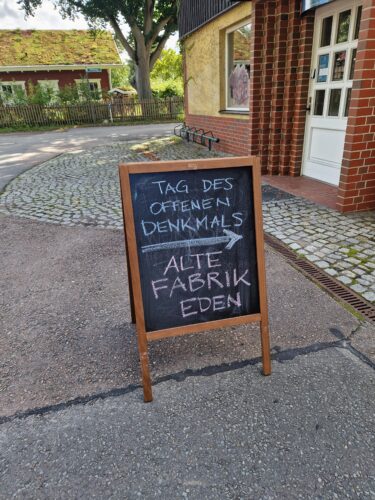 TAG DES
OFFENEN
DENKMALS
ALTE
FABRIK
EDEN